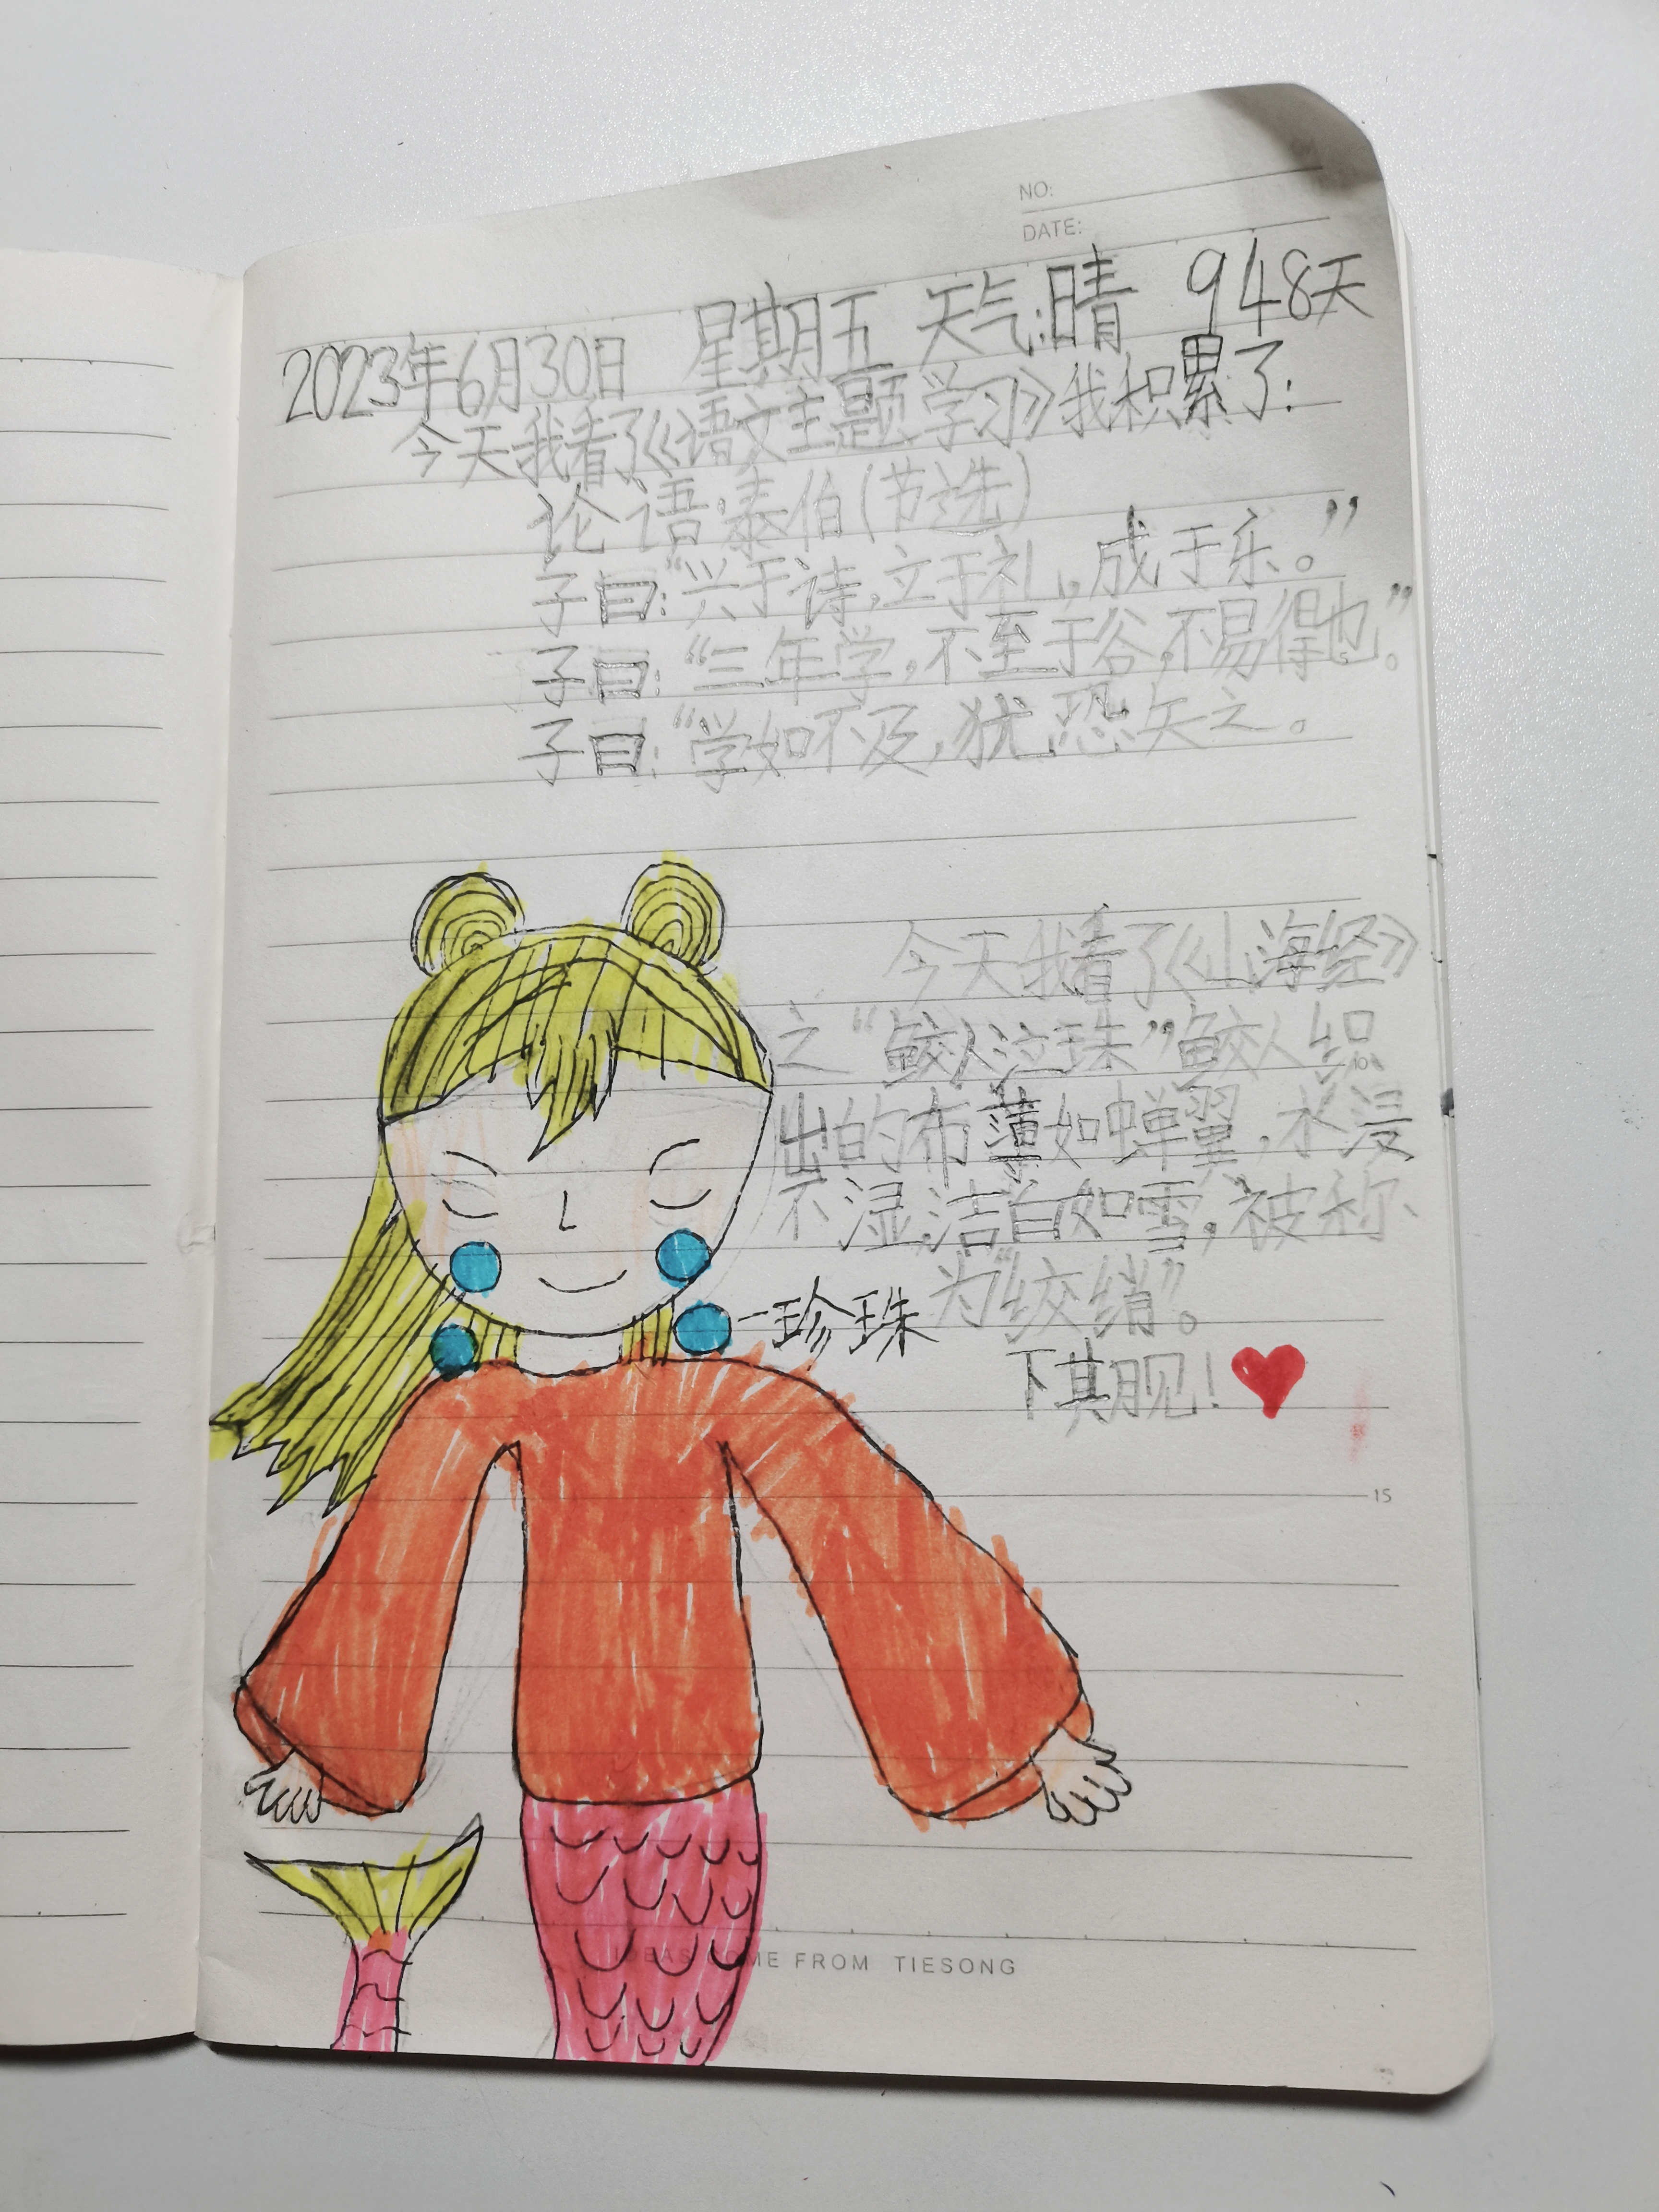 NO:
DATE:
2023年6月30日 星期五 天气:晴 948天
今天我看了《语文主题学习》我积累了:
论语·泰伯(节选)
子曰:“兴于诗,立于礼,成于乐。”
子曰:“三年学,不至于谷,不易得也。”
子曰:“学如不及,犹恐失之。
今天我看了《山海经》
之“鲛人泣珠”鲛人织
出的布薄如蝉翼,水浸
不湿,洁白如雪,被称
为“绞绡”。
珍珠
下其月见!
15
IDEAS COME FROM TIESONG